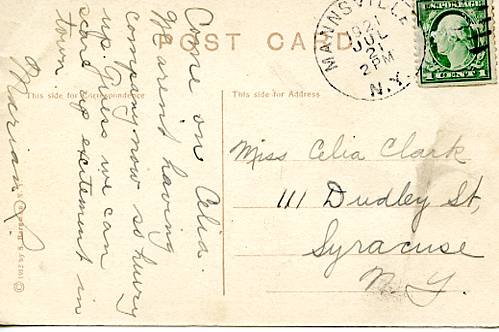 POST CARD
This side for Correspondence
This side for Address
MANNSVILLE
1921
JUL
21
2 PM
N.Y.
U.S. POSTAGE
1 CENT 1
Come on Celia.
We aren't having
company now so hurry
up. Guess we can
scare up excitement in
town.
Marian
Miss Celia Clark
111 Dudley St,
Syracuse
N. Y.